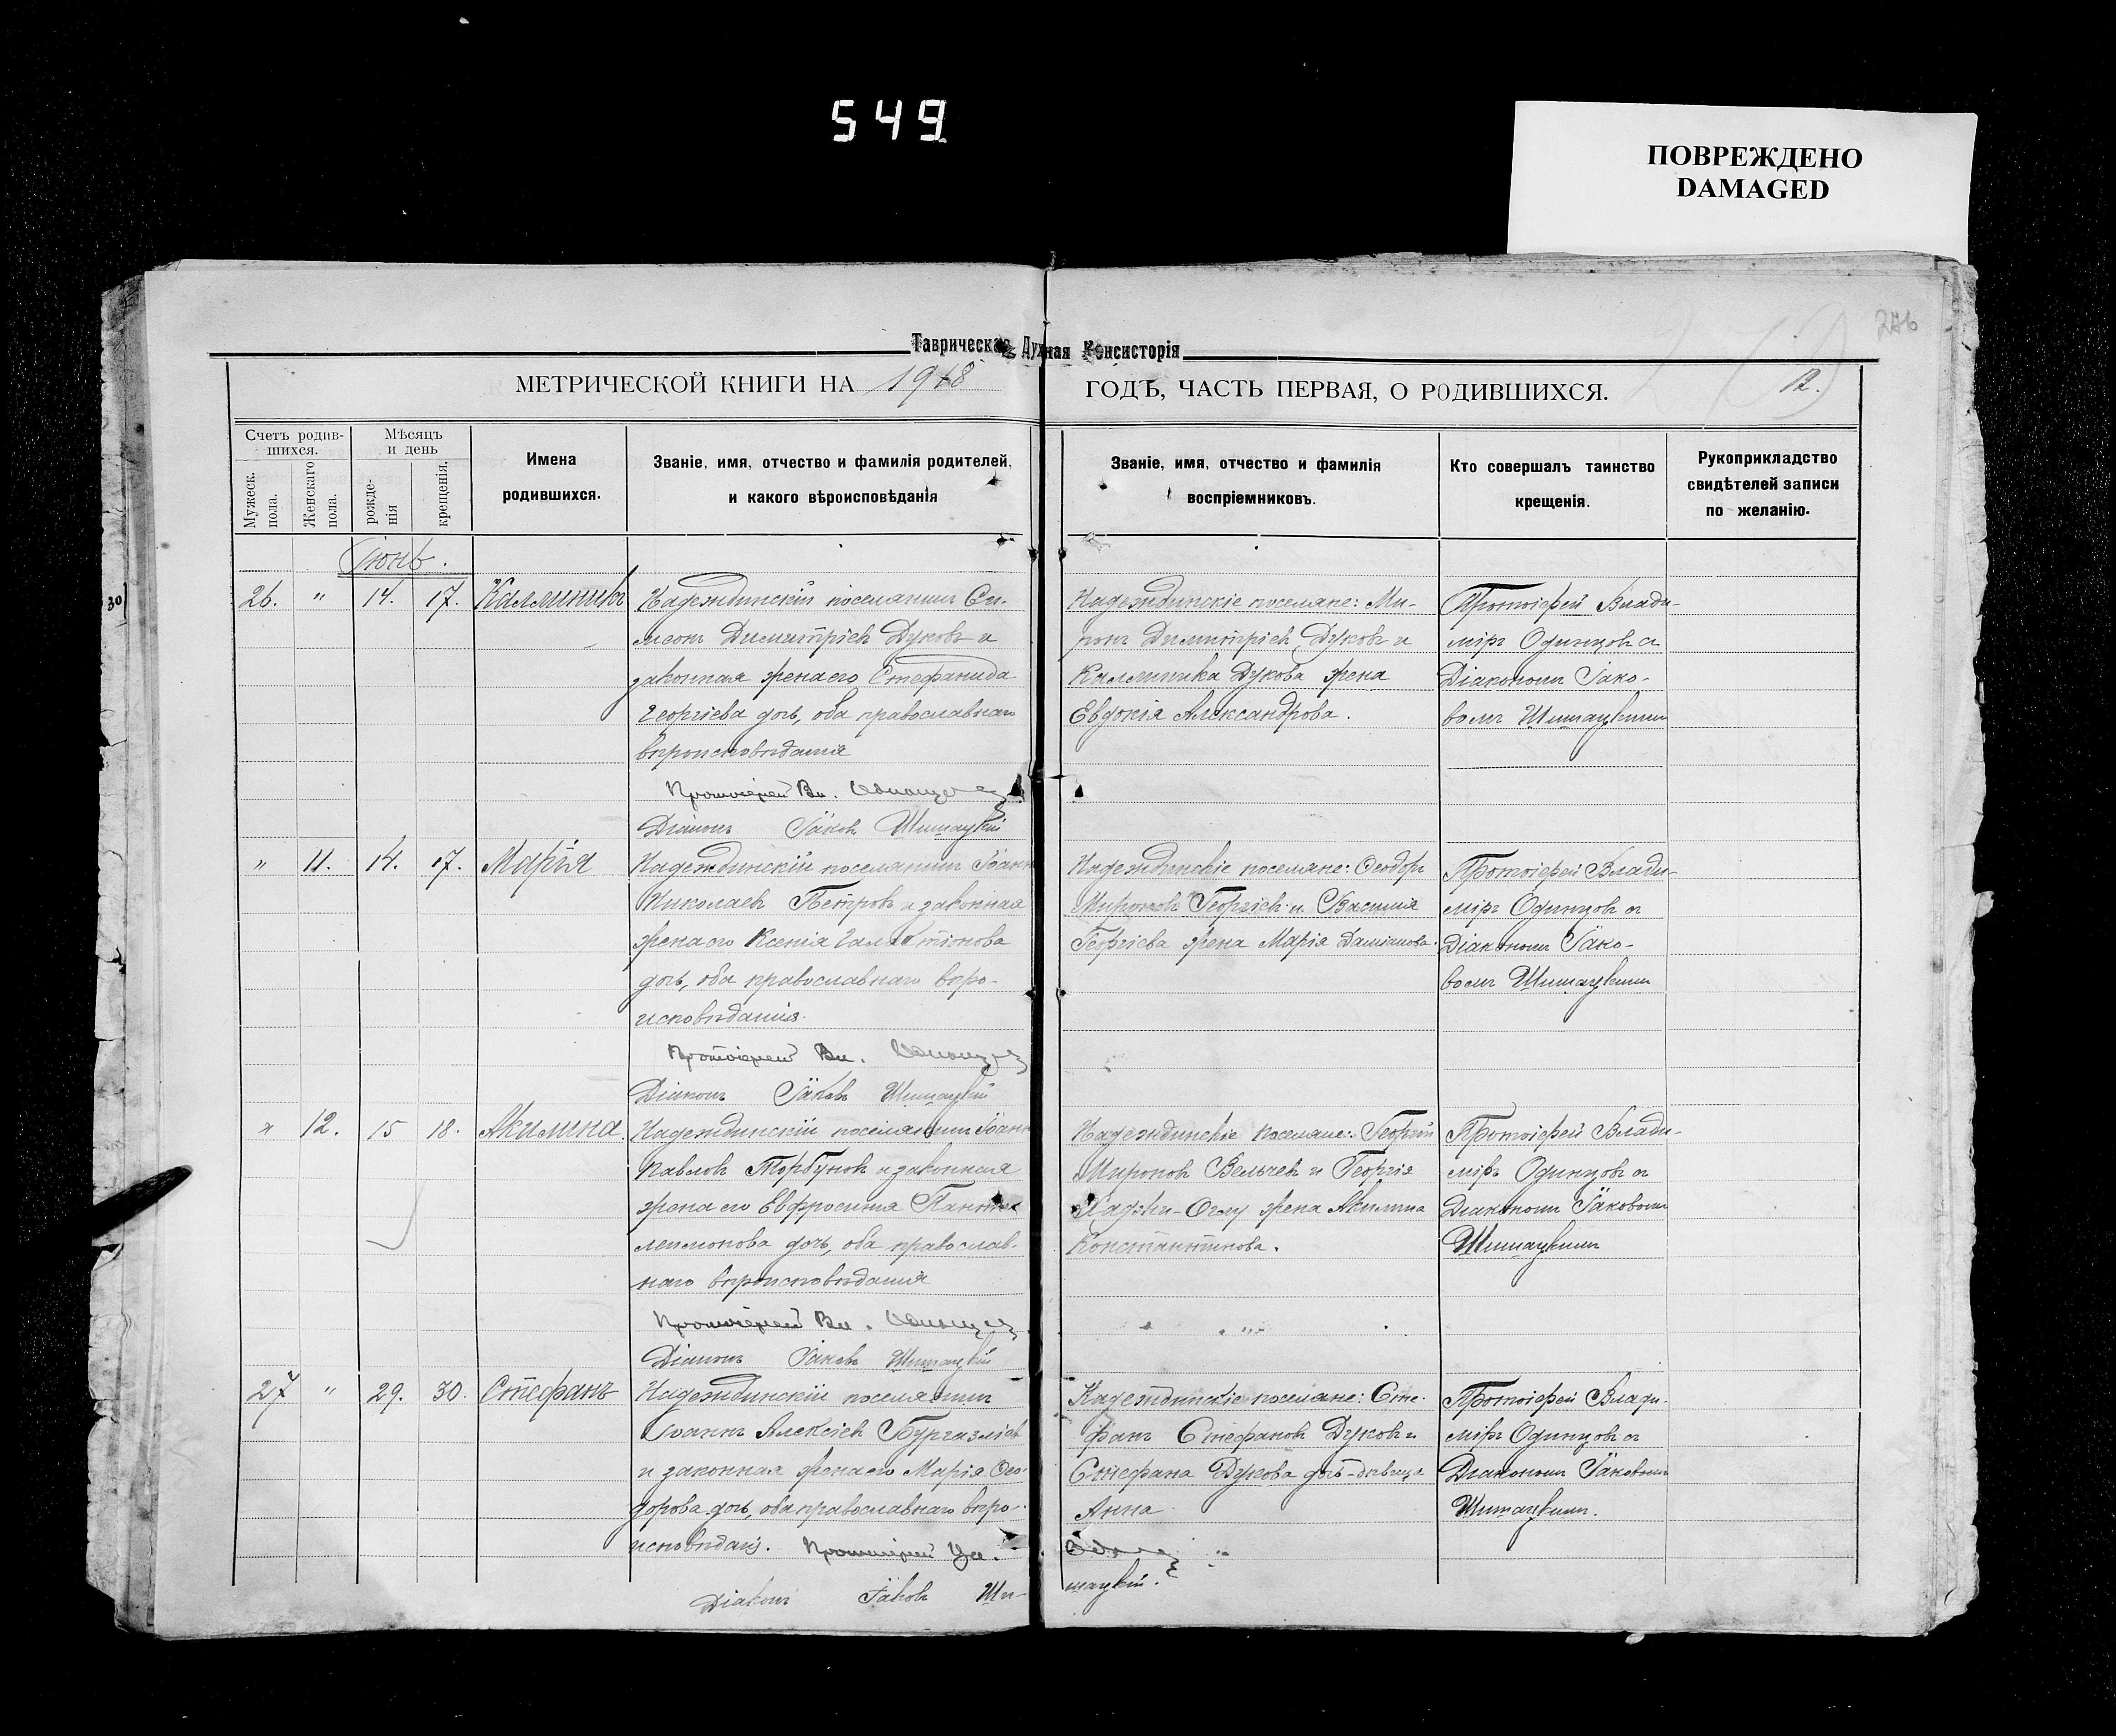 549
ПОВРЕЖДЕНО
DAMAGED
276
Таврическая Духная Консисторія
МЕТРИЧЕСКОЙ КНИГИ НА 1918
ГОДЪ, ЧАСТЬ ПЕРВАЯ, О РОДИВШИХСЯ.
12.
Счетъ родив-
шихся.
Мужеск. пола.
Женскаго пола.
Мѣсяцъ
и день
рожде-
нія
крещенія.
Имена
родившихся.
Званіе, имя, отчество и фамилія родителей,
и какого вѣроисповѣданія
Званіе, имя, отчество и фамилія
воспріемниковъ.
Кто совершалъ таинство
крещенія.
Рукоприкладство
свидѣтелей записи
по желанію.
30
Іюнь.
26. " 14. 17. Каллиникъ
Надеждинскій поселянинъ Си-
меонъ Димитріевъ Дуковъ и
законная жена его Стефанида
Георгіева дочь, оба православнаго
вѣроисповѣданія
Протоіерей Вл. Одинцов
Діаконъ Іаковъ Шишацкій
Надеждинскіе поселяне: Ми-
ронъ Димитріевъ Дуковъ и
Каллиника Дукова жена
Евдокія Александрова.
Протоіерей Влади-
міръ Одинцовъ съ
Діакономъ Іако-
вомъ Шишацкимъ
" 11. 14. 17. Марія
Надеждинскій поселянинъ Іоаннъ
Николаевъ Петровъ и законная
жена его Ксенія Галактіонова
дочь, оба православнаго вѣро-
исповѣданія.
Протоіерей Вл. Одинцов
Діаконъ Іаковъ Шишацкій
Надеждинскіе поселяне: Ѳеодоръ
Мироновъ Георгіевъ и Василія
Георгіева жена Марія Даміанова.
Протоіерей Влади-
міръ Одинцовъ съ
Діакономъ Іако-
вомъ Шишацкимъ
" 12. 15 18. Акилина.
Надеждинскій поселянинъ Іоаннъ
Павловъ Торбуновъ и законная
жена его Евфросинія Панте-
леимонова дочь, оба православ-
наго вѣроисповѣданія
Протоіерей Вл. Одинцов
Діаконъ Іаковъ Шишацкій
Надеждинскіе поселяне: Георгій
Мироновъ Вельчевъ и Георгія
Хаджи-Оглу жена Акилина
Константинова.
Протоіерей Влади-
міръ Одинцовъ съ
Діакономъ Іаковомъ
Шишацкимъ
27 " 29. 30. Стефанъ
Надеждинскій поселянинъ
Іоаннъ Алексіевъ Бургазліевъ
и законная жена его Марія Ѳео-
дорова дочь, оба православнаго вѣро-
исповѣданія. Протоіерей Вл.
Діаконъ Іаковъ Ши-
Надеждинскіе поселяне: Сте-
фанъ Стефановъ Дуковъ и
Стефана Дукова дочь-дѣвица
Анна
шацкій.
Протоіерей Влади-
міръ Одинцовъ съ
Діакономъ Іаковомъ
Шишацкимъ.